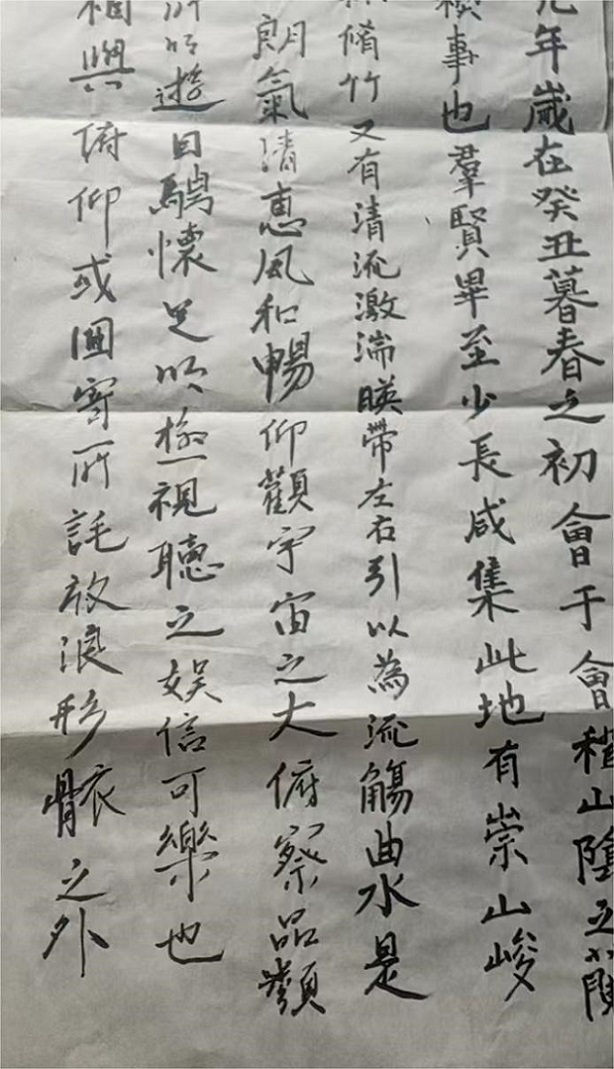 元年歲在癸丑暮春之初會于會稽山陰之蘭
禊事也羣賢畢至少長咸集此地有崇山峻
脩竹又有清流激湍暎帶左右引以為流觴曲水是
朗氣清惠風和暢仰觀宇宙之大俯察品類
所以遊目騁懷足以極視聽之娛信可樂也
相與俯仰或因寄所託放浪形骸之外